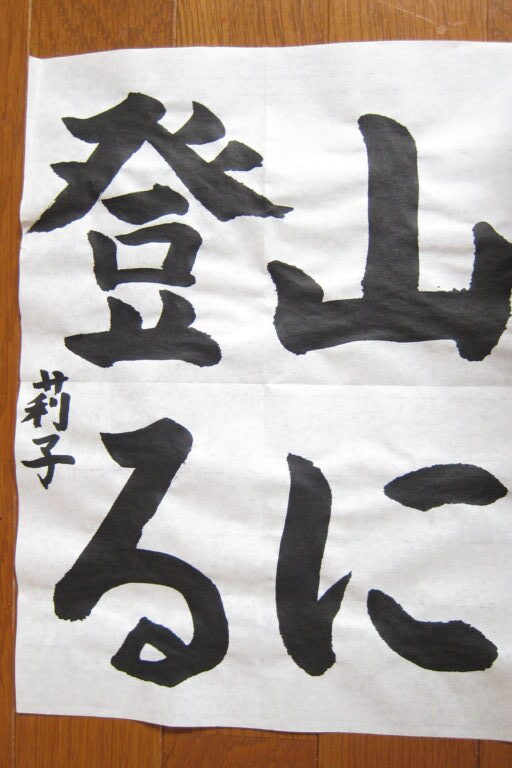 山に
登る
莉子